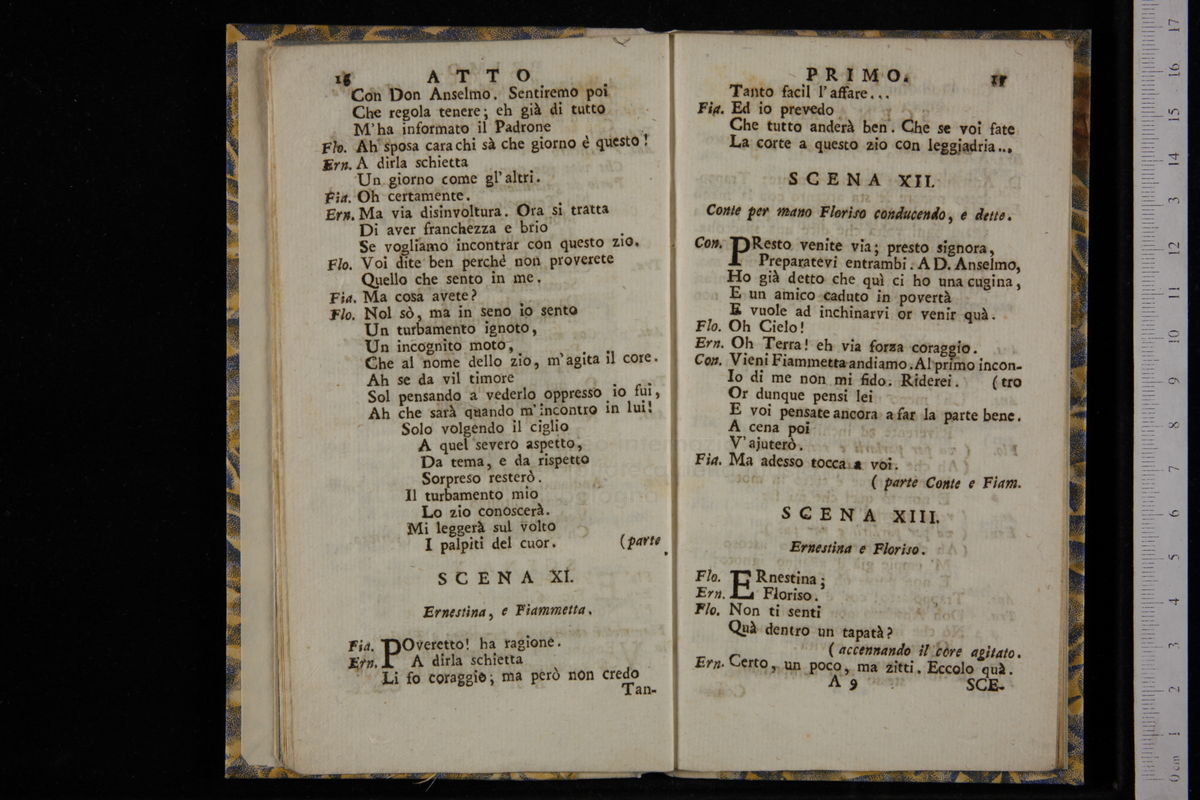 16 ATTO
Con Don Anselmo. Sentiremo poi
Che regola tenere; eh già di tutto
M'ha informato il Padrone
Flo. Ah sposa cara chi sà che giorno è questo!
Ern. A dirla schietta
Un giorno come gl'altri.
Fia. Oh certamente.
Ern. Ma via disinvoltura. Ora si tratta
Di aver franchezza e brio
Se vogliamo incontrar con questo zio.
Flo. Voi dite ben perchè non proverete
Quello che sento in me.
Fia. Ma cosa avete?
Flo. Nol sò, ma in seno io sento
Un turbamento ignoto,
Un incognito moto,
Che al nome dello zio, m'agita il core.
Ah se da vil timore
Sol pensando a vederlo oppresso io fui,
Ah che sarà quando m'incontro in lui!
Solo volgendo il ciglio
A quel severo aspetto,
Da tema, e da rispetto
Sorpreso resterò.
Il turbamento mio
Lo zio conoscerà.
Mi leggerà sul volto
I palpiti del cuor. (parte
SCENA XI.
Ernestina, e Fiammetta.
Fia. POveretto! ha ragione.
Ern. A dirla schietta
Li fo coraggio; ma però non credo
Tan-
PRIMO.
Tanto facil l'affare...
Fia. Ed io prevedo
Che tutto anderà ben. Che se voi fate
La corte a questo zio con leggiadria...
SCENA XII.
Conte per mano Floriso conducendo, e dette.
Con. PResto venite via; presto signora,
Preparatevi entrambi. A D. Anselmo,
Ho già detto che quì ci ho una cugina,
E un amico caduto in povertà
E vuole ad inchinarvi or venir quà.
Flo. Oh Cielo!
Ern. Oh Terra! eh via forza coraggio.
Con. Vieni Fiammetta andiamo. Al primo incon-
Io di me non mi fido. Riderei. (tro
Or dunque pensi lei
E voi pensate ancora a far la parte bene.
A cena poi
V'ajuterò.
Fia. Ma adesso tocca a voi.
( parte Conte e Fiam.
SCENA XIII.
Ernestina e Floriso.
Flo. ERnestina;
Ern. Floriso.
Flo. Non ti senti
Quà dentro un tapatà?
( accennando il core agitato.
Ern. Certo, un poco, ma zitti. Eccolo quà.
A 9 SCE-